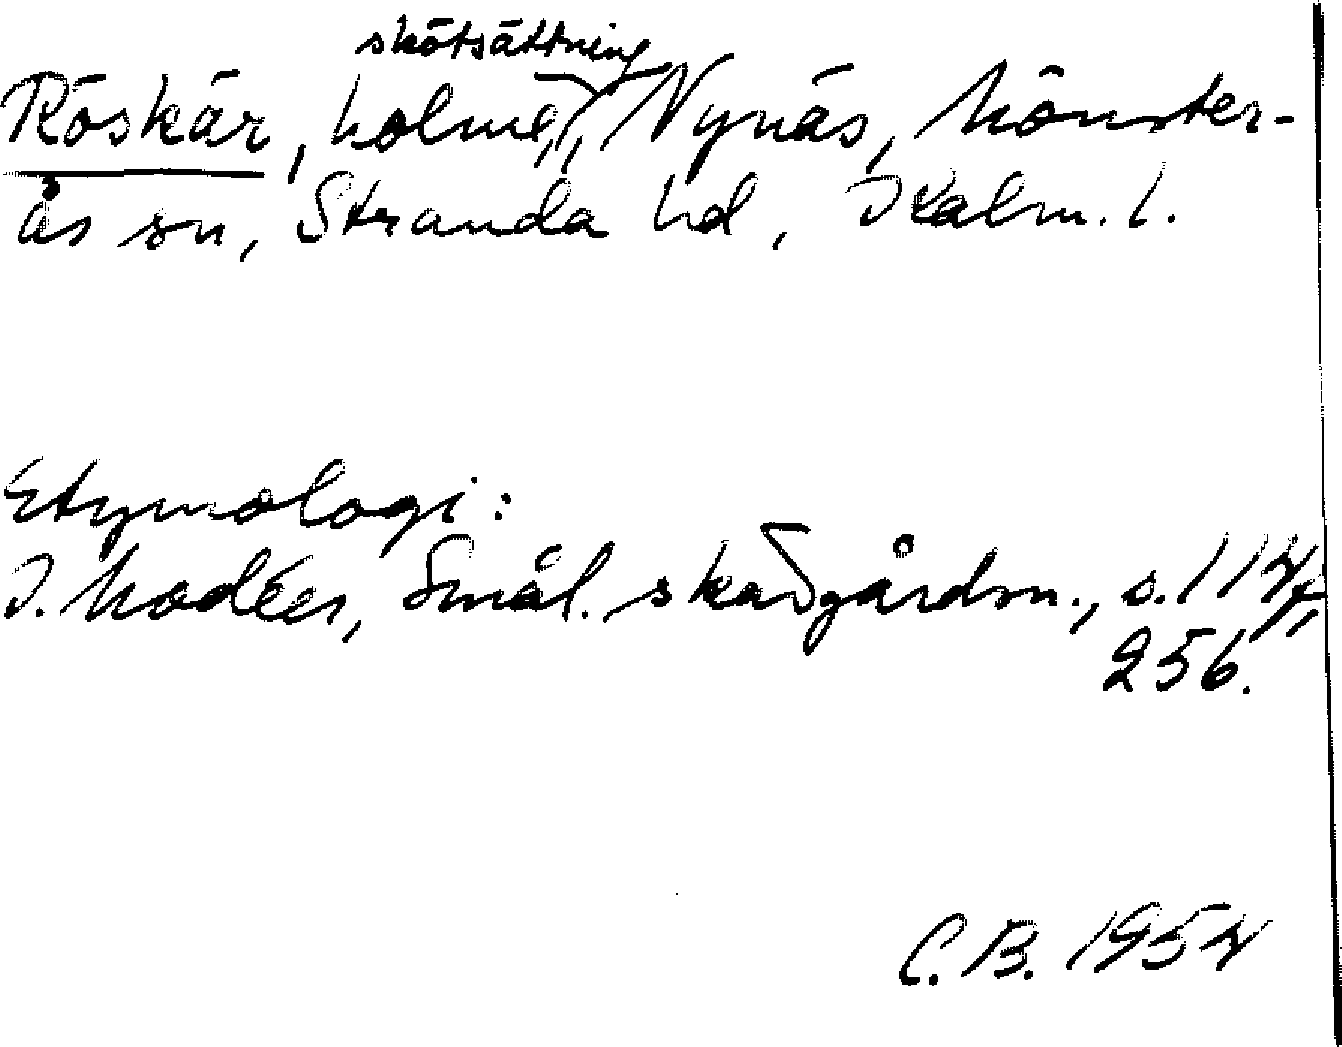 skötsättning
Röskär, holme, Nynäs, Mönster-
ås sn, Stranda hd, Kalm. l.
Etymologi:
I. Modéer, Smål. skärgårdsn., s. 114f,
256.
C.B. 1954